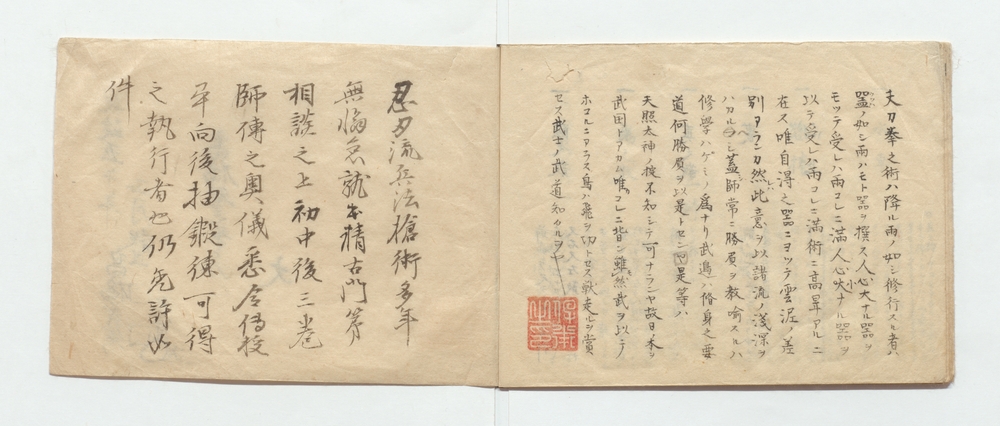 夫刀拳之術ハ降ル雨ノ如シ修行スル者ハ
器ノ如シ雨ハモト器ヲ撰ス人心大ナル器ヲ
モッテ受レハ雨コレニ満人心小ナル器ヲ
以テ受レハ雨コレニ満術ニ高昇アルニ
在ス唯自得之器ニヨッテ雲泥ノ差
別アランカ然此意ヲ以諸流ノ浅深ヲ
ハカルヘシ蓋師常ニ勝負ヲ教喩スルハ
修学ハゲミノ為ナリ武過ハ脩身之要
道何勝負ヲ以是トセン因是等ハ
天照太神ノ掟不知シテ可ナランヤ故日ノ本ヲ
武国トアカム唯コレニ皆シ雖然武ヲ以テ
ホコルニアラス鳥ハ飛ヲ切トセス獣走ルヲ賞
セス武士ノ武道知カルヲヤ
忍刀流兵法槍術多年
無懈怠就中精古門等
相談之上初中後三巻
師傳之奥儀悉令傳授
畢向後抽鍛錬可得
之執行者也仍免許如
件